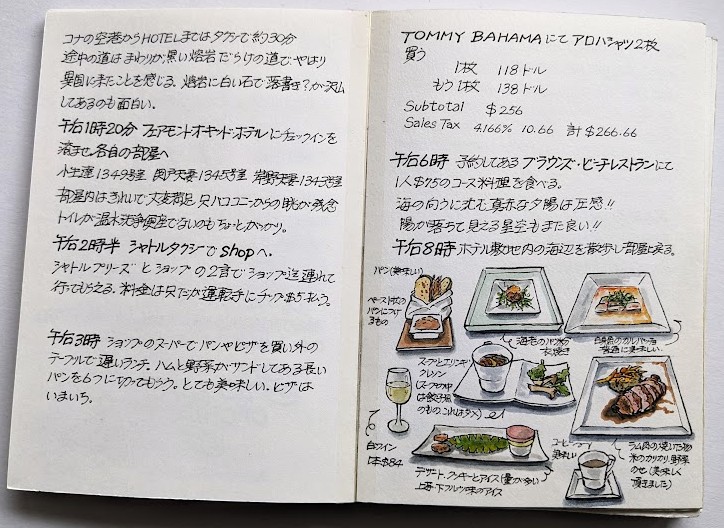 コナの空港からHOTELまではタクシで約30分
途中の道はまわりが黒い熔岩だらけの道で、やはり
異国に来たことを感じる。熔岩に白い石で落書き?が沢山
してあるのも面白い。
午后1時20分 フェアモントオーキッドホテルにチェックインを
済ませ各自の部屋へ
1349号室 1345号室 1343号室
部屋内はきれいで大変満足 只バルコニーからの眺が残念
トイレが温水洗浄便座でないのもちょとがっかり。
午后2時半 シャトルタクシーでshopへ.
シャトルフリーズ と ショップ の2言でショップ迄連れて
行ってもらえる。料金は只だが運転手にチップ$5払う。
午后3時 ショップのスーパーでパンやピザを買い外の
テーブルで遅いランチ。ハムと野菜がサンドしてある長い
パンを6つに切ってもらう。とても美味しい。ピザは
いまいち。
TOMMY BAHAMAにて アロハシャツ2枚
買う
1枚 118ドル
もう1枚 138ドル
Subtotal $256
Sales Tax 4.166% 10.66 計$266.66
午后6時 予約してある ブラウンズ・ビーチレストランにて
1人$75のコース料理を食べる。
海の向うに沈む真赤な夕陽は圧感!!
陽が落ちて見える星空もまた良い!!
午后8時 ホテル敷地内の海辺を散歩し部屋に戻る。
パン(美味しい)
ペースト状の
パンにつけ
るもの
海老の
白身魚のカルパッチョ
普通に美味しい
スープとエリンギ
クレソン
(スープの中
は餃子風
のもの これはダメ)
白ワイン
1本$84
デザート・クッキーとアイス(量が多い)
上苺・下フルーツ味のアイス
コーヒー
美味しい
ラム肉の焼いた物
米のカリカリ、野菜
のせ(美味しく
頂きました)